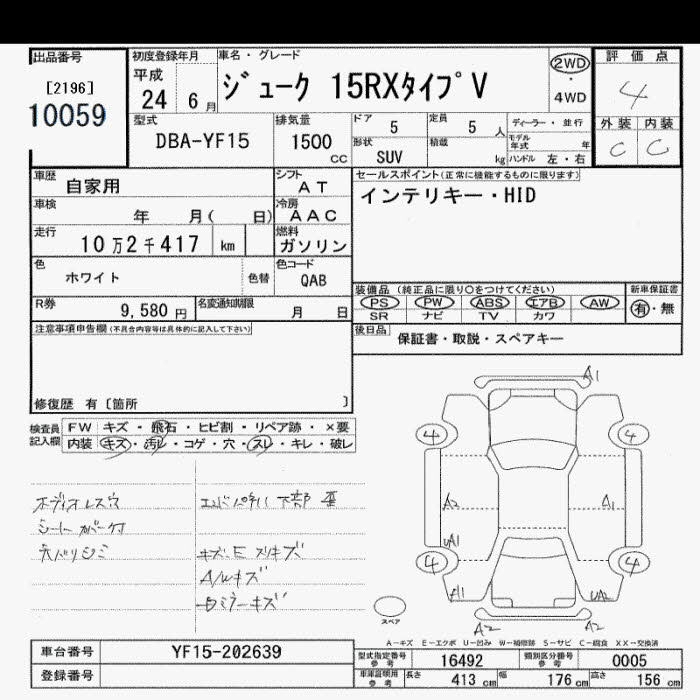 出品番号
[2196]
10059
初度登録年月
平成
24 6月
車名・グレード
ジューク 15RXタイプV
2WD
・
4WD
評価点
4
外装 内装
C C
型式
DBA-YF15
排気量
1500
cc
ドア
5
定員
5人
形状
SUV
積載
kg
ディーラー・並行
モデル年式 年
ハンドル 左・右
車歴
自家用
シフト
AT
車検
年 月( 日)
冷房
AAC
走行
10万2千417 km
燃料
ガソリン
色
ホワイト
色替
色コード
QAB
R券
9,580円
名変通知期限
月 日
セールスポイント(正常に機能するものに限ります)
インテリキー・HID
装備品(純正品に限り○をつけてください)
PS PW ABS エアB AW
SR ナビ TV カワ
新車保証書
有・無
後日品
保証書・取説・スペアキー
注意事項申告欄(不具合内容等は具体的に記入して下さい)
修復歴 有〔箇所 〕
検査員記入欄
FW キズ・飛石・ヒビ割・リペア跡・×要
内装 キズ・汚レ・コゲ・穴・スレ・キレ・破レ
シートカバー付
天バリシミ
下部
キズ・E スリキズ
A/Wキズ
A1
4 4
A2 A1
UA1
4 4
A1 UA2
A2 A2
スペア
A-キズ E-エクボ U-凹み W-補修跡 S-サビ C-腐食 XX-交換済
車台番号
YF15-202639
登録番号
型式指定番号参考
16492
類別区分番号参考
0005
車庫証明用参考
長さ 413cm 幅 176cm 高さ 156cm